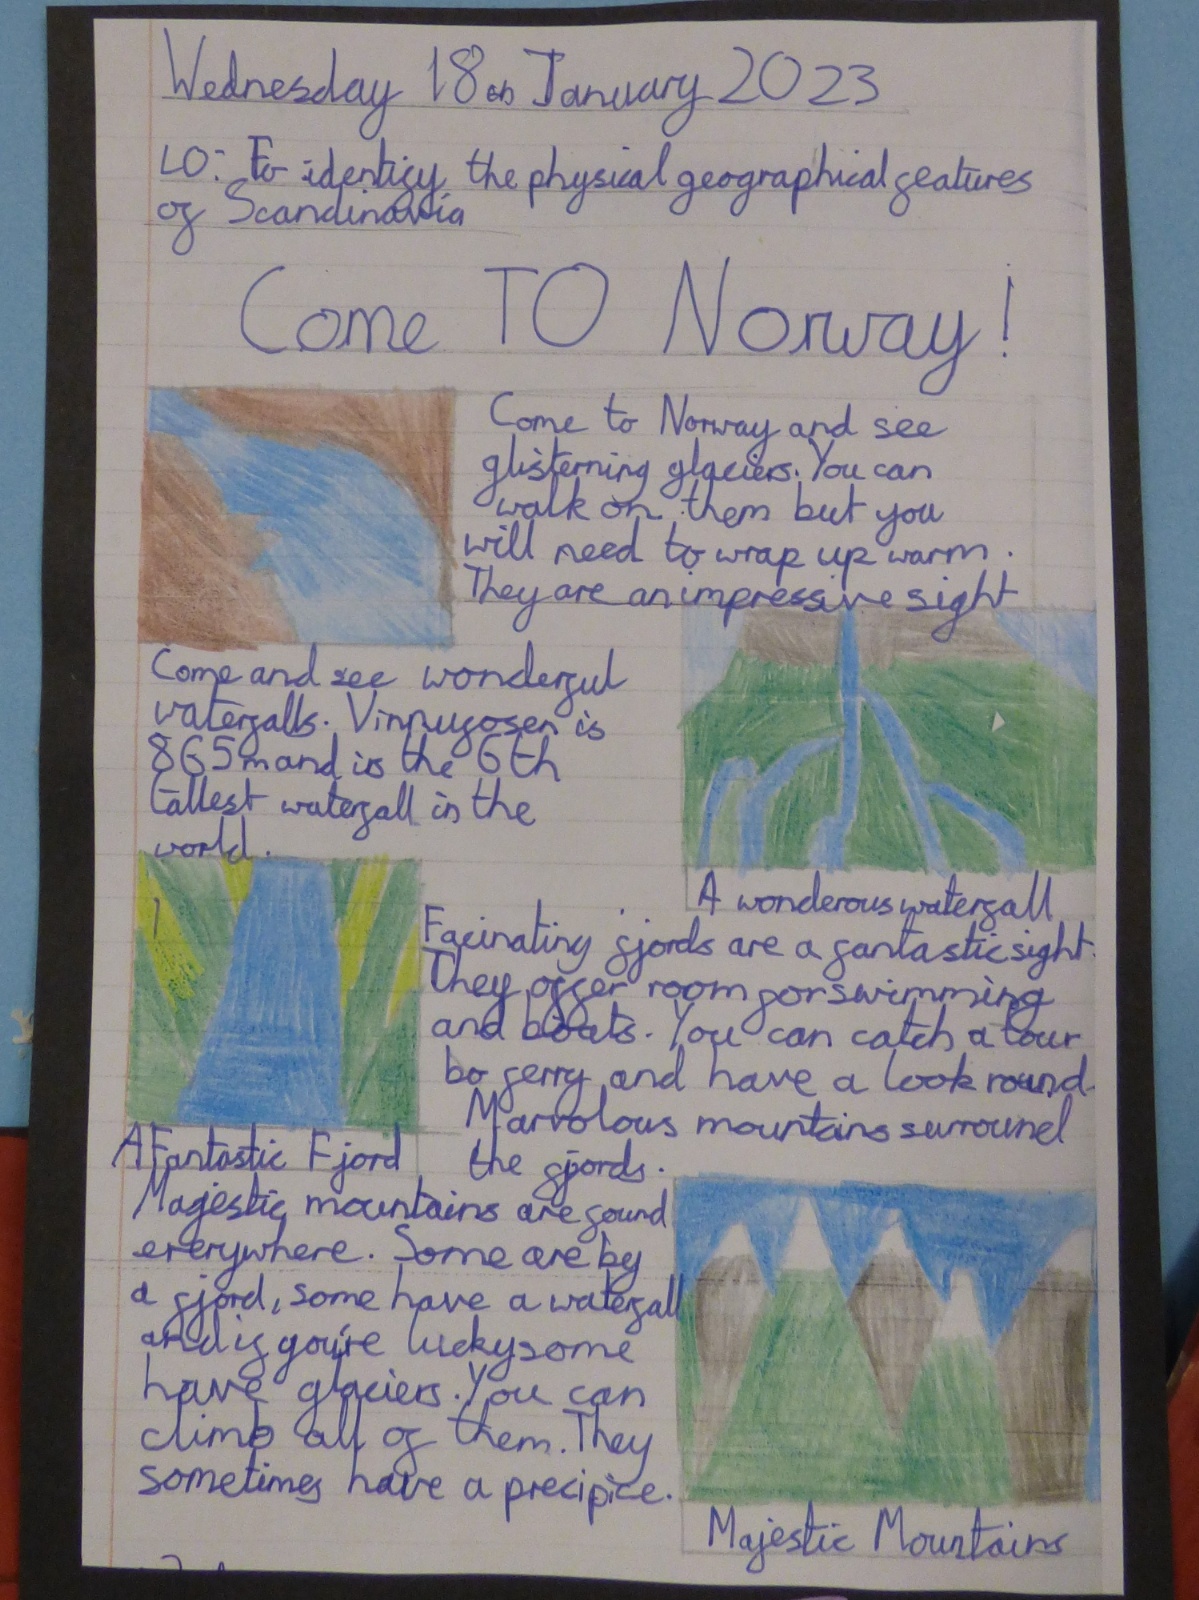 Wednesday 18th January 2023
LO: To identify the physical geographical features
of Scandinavia
Come TO Norway!
Come to Norway and see
glisterning glaciers. You can
walk on them but you
will need to wrap up warm.
They are an impressive sight
Come and see wonderful
waterfalls. Vinnufosen is
865m and is the 6th
tallest waterfall in the
world.
A wonderous waterfall
Facinating fjords are a fantastic sight.
They offer room for swimming
and boats. You can catch a tour
bo ferry and have a look round.
Marvolous mountains surround
the fjords.
A Fantastic Fjord
Majestic mountains are found
everywhere. Some are by
a fjord, some have a waterfall
and if you're lucky some
have glaciers. You can
climb all of them. They
sometimes have a precipice.
Majestic Mountains